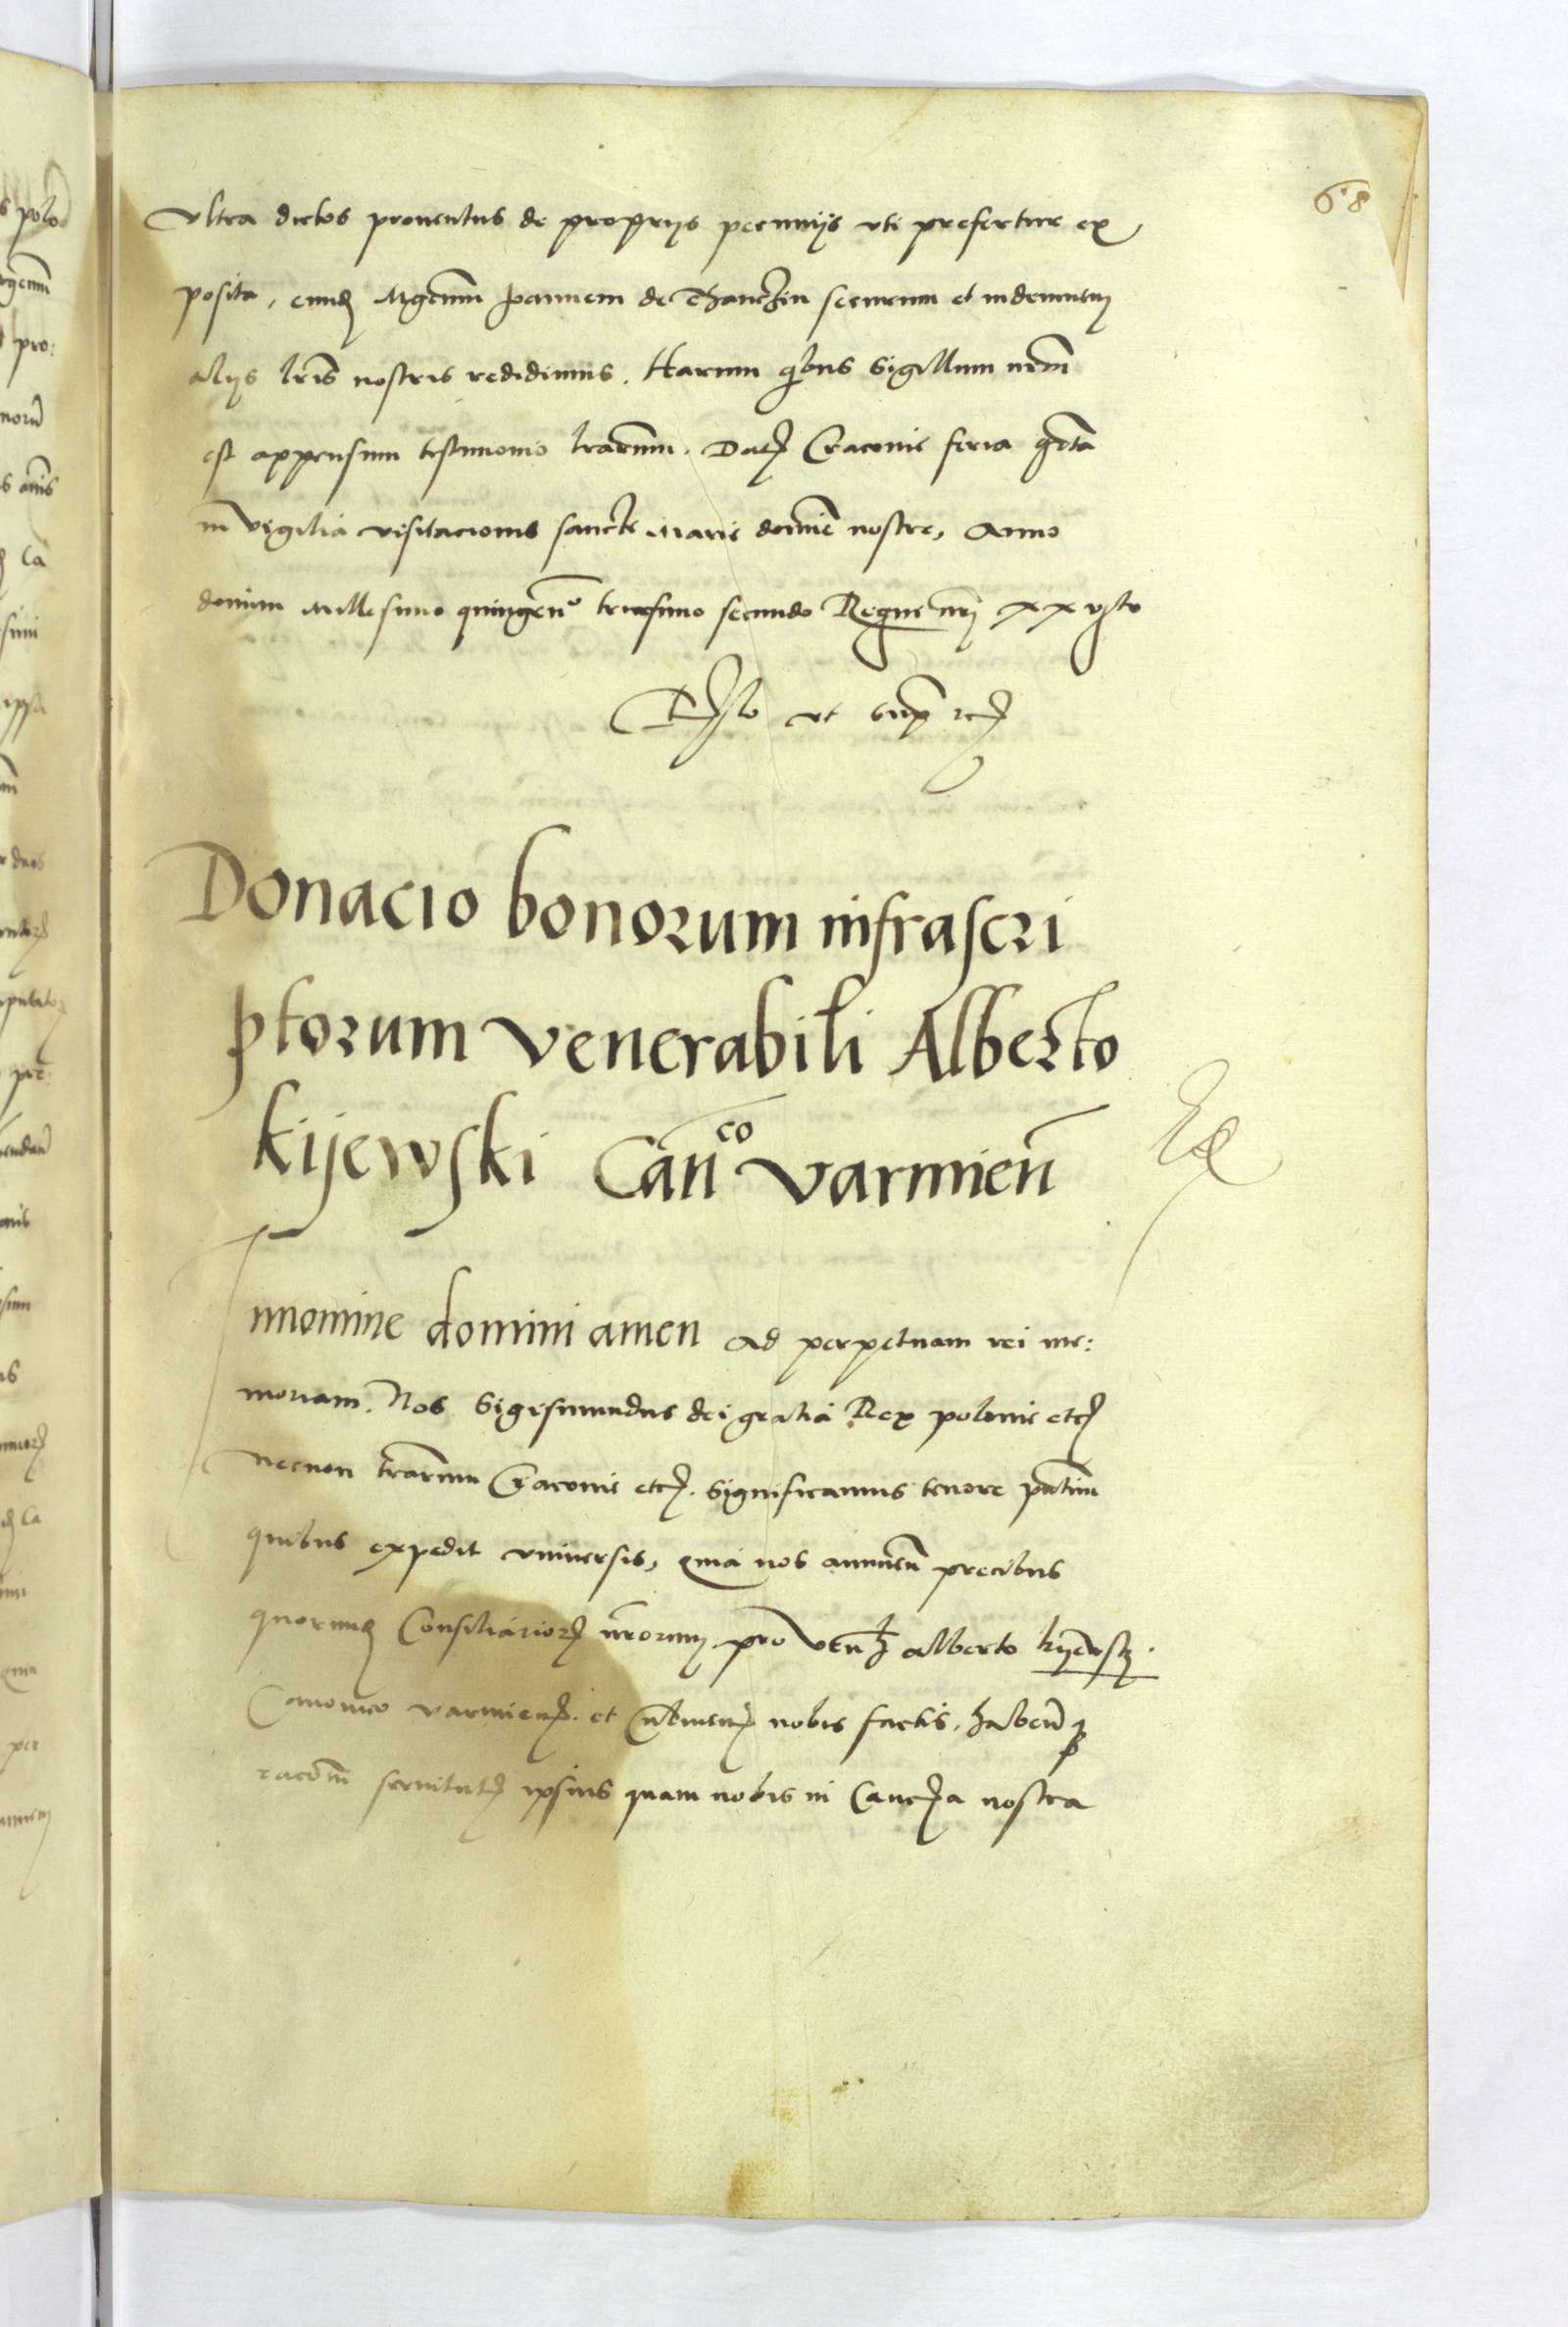 68
Ultra dictos proventus de propriis pecuniis uti prefertur ex
posita, eund Mgcum Joannem de Thanczin securum et indemnem
aliis lris nostris reddidimus. Harum quibus sigillum nrm
est appensum testimonio lrarum. Dat Cracovie feria
in vigilia visitacionis sancte Marie domine nostre, Anno
domini Millesimo quingeno tricesimo secundo Regni nri xxvjto
ut supra
Donacio bonorum infrascri
ptorum venerabili Alberto
kijewski Canco varmien
In nomine domini amen Ad perpetuam rei me:
moriam. Nos Sigismundus dei gratia Rex polonie etc
necnon trarum Cracovie etc. Significamus tenore pntium
quibus expedit universis, quia nos annuen precibus
quorund Consiliarior nrorum pro ven Alberto kijewsky
Canonico varmien. et nobis factis, haben
racom servitut ipsius quam nobis in Canc̃a nostra